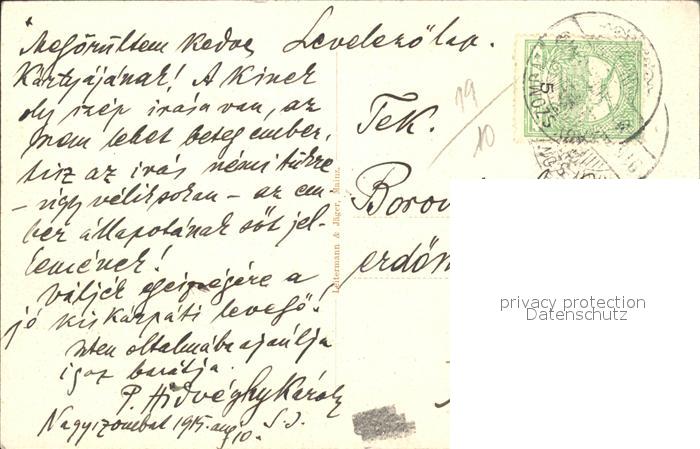 Megörültem kedves Levelezőlap.
Kártyájának! A kinek
oly szép irása van, az
nem lehet beteg ember,
hisz az irás némi tükre
– úgy vélik sokan – az em
ber állapotának sőt jel-
lemének!
Váljék egészségére a
jó kiskárpáti levegő!
Isten oltalmába ajánlja
igaz barátja
P. Hidvéghy Károly
S. J.
Nagyszombat 1915. aug 10.
Leitermann & Jäger, Mainz.
19
10
Tek.
Borov
erdőm
privacy protection
Datenschutz